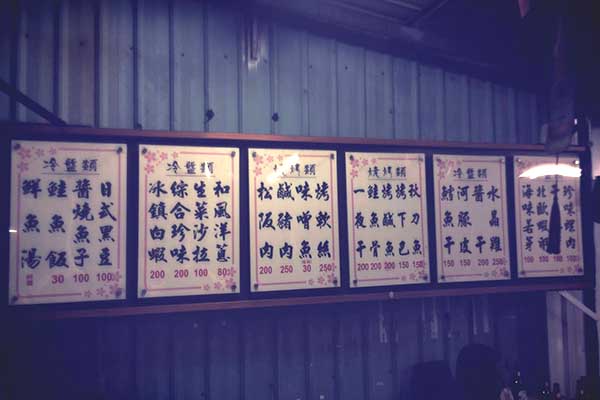 冷盤類
日式黑豆 100
醬燒魚子 100
鮭魚飯 30
鮮魚湯
冷盤類
和風洋蔥 80
生菜沙拉 100
綜合珍味 200
冰鎮白蝦 200
燒烤類
烤軟絲
味噌魚
鹹豬肉 250
松阪肉 200
燒烤類
秋刀魚 150
烤下巴 150
烤鹹魚 200
鮭魚骨 200
一夜干 200
水晶雞
河豚皮 150
鱈魚干 150
珍味螺肉 100
海味若芽 100